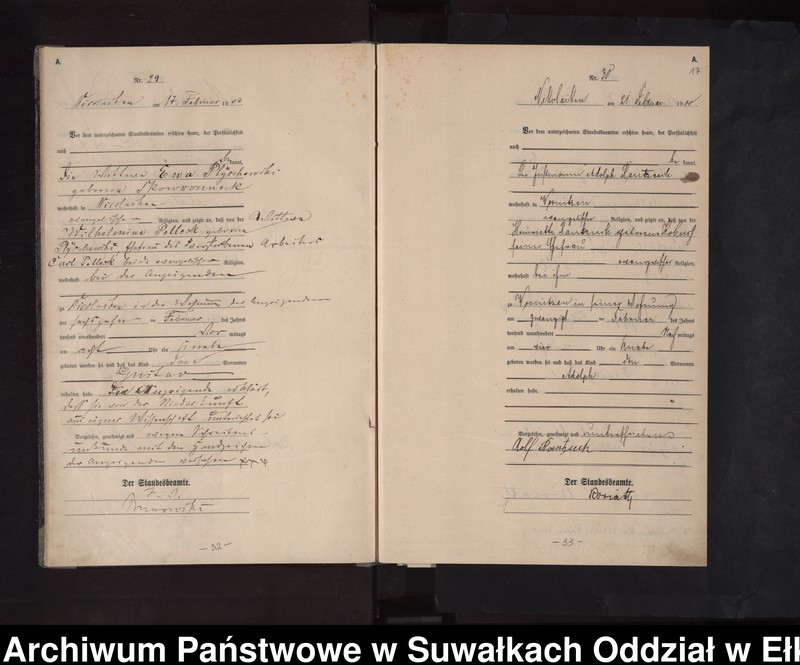 A.
Nr. 29
Nicolaiken am 17. Februar 1900
Vor dem unterzeichneten Standesbeamten erschien heute, der Persönlichkeit
nach
be kannt,
die Wittwe Ewa Plychewski
geborene Skowronnek
wohnhaft in Nicolaiken
evangelischer Religion, und zeigte an, daß von der Wittwe
Wilhelmine Polleck geborene
des verstorbenen Arbeiters
Carl Polleck beide evangelischer Religion,
wohnhaft bei der Anzeigenden
zu Nicolaiken in der Wohnung der Anzeigenden
am im Februar des Jahres
tausend neunhundert Vor mittags
um acht Uhr ein Knabe
geboren worden sei und daß das Kind den Vornamen
Gustav
erhalten habe. Die Anzeigende erklärt,
daß sie von der Niederkunft
aus eigner Wissenschaft unterrichtet sei
Vorgelesen, genehmigt und wegen Schreibens-
unkunde mit den Handzeichen
der Anzeigenden versehen xxx
Der Standesbeamte.
— 32 —
A.
17
Nr. 30
Nikolaiken am 21 Februar 1900
Vor dem unterzeichneten Standesbeamten erschien heute, der Persönlichkeit
nach
be kannt,
der Adolph
wohnhaft in
evangelischer Religion, und zeigte an, daß von der
Henriette geborenen
seiner Ehefrau
evangelischer Religion,
wohnhaft bei ihm
zu in seiner Wohnung
am zwanzigst im Februar des Jahres
tausend neunhundert Nach mittags
um vier Uhr ein Knabe
geboren worden sei und daß das Kind den Vornamen
Adolph
erhalten habe.
Vorgelesen, genehmigt und unterschrieben
Adolf
Der Standesbeamte.
— 33 —
Archiwum Państwowe w Suwałkach Oddział w Ełk